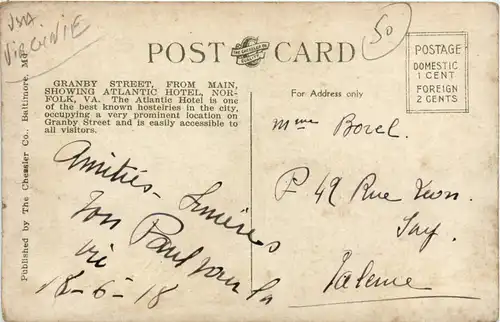 USA
VIRGINIE
POST CARD
THE CHESSLER CO.
QUALITY
50
POSTAGE
DOMESTIC
1 CENT
FOREIGN
2 CENTS
GRANBY STREET, FROM MAIN,
SHOWING ATLANTIC HOTEL, NOR-
FOLK, VA. The Atlantic Hotel is one
of the best known hostelries in the city,
occupying a very prominent location on
Granby Street and is easily accessible to
all visitors.
For Address only
Published by The Chessler Co., Baltimore, Md.
Amitiés
Ton Paul
18-6-18
Mme Borel.
49 Rue
Valence